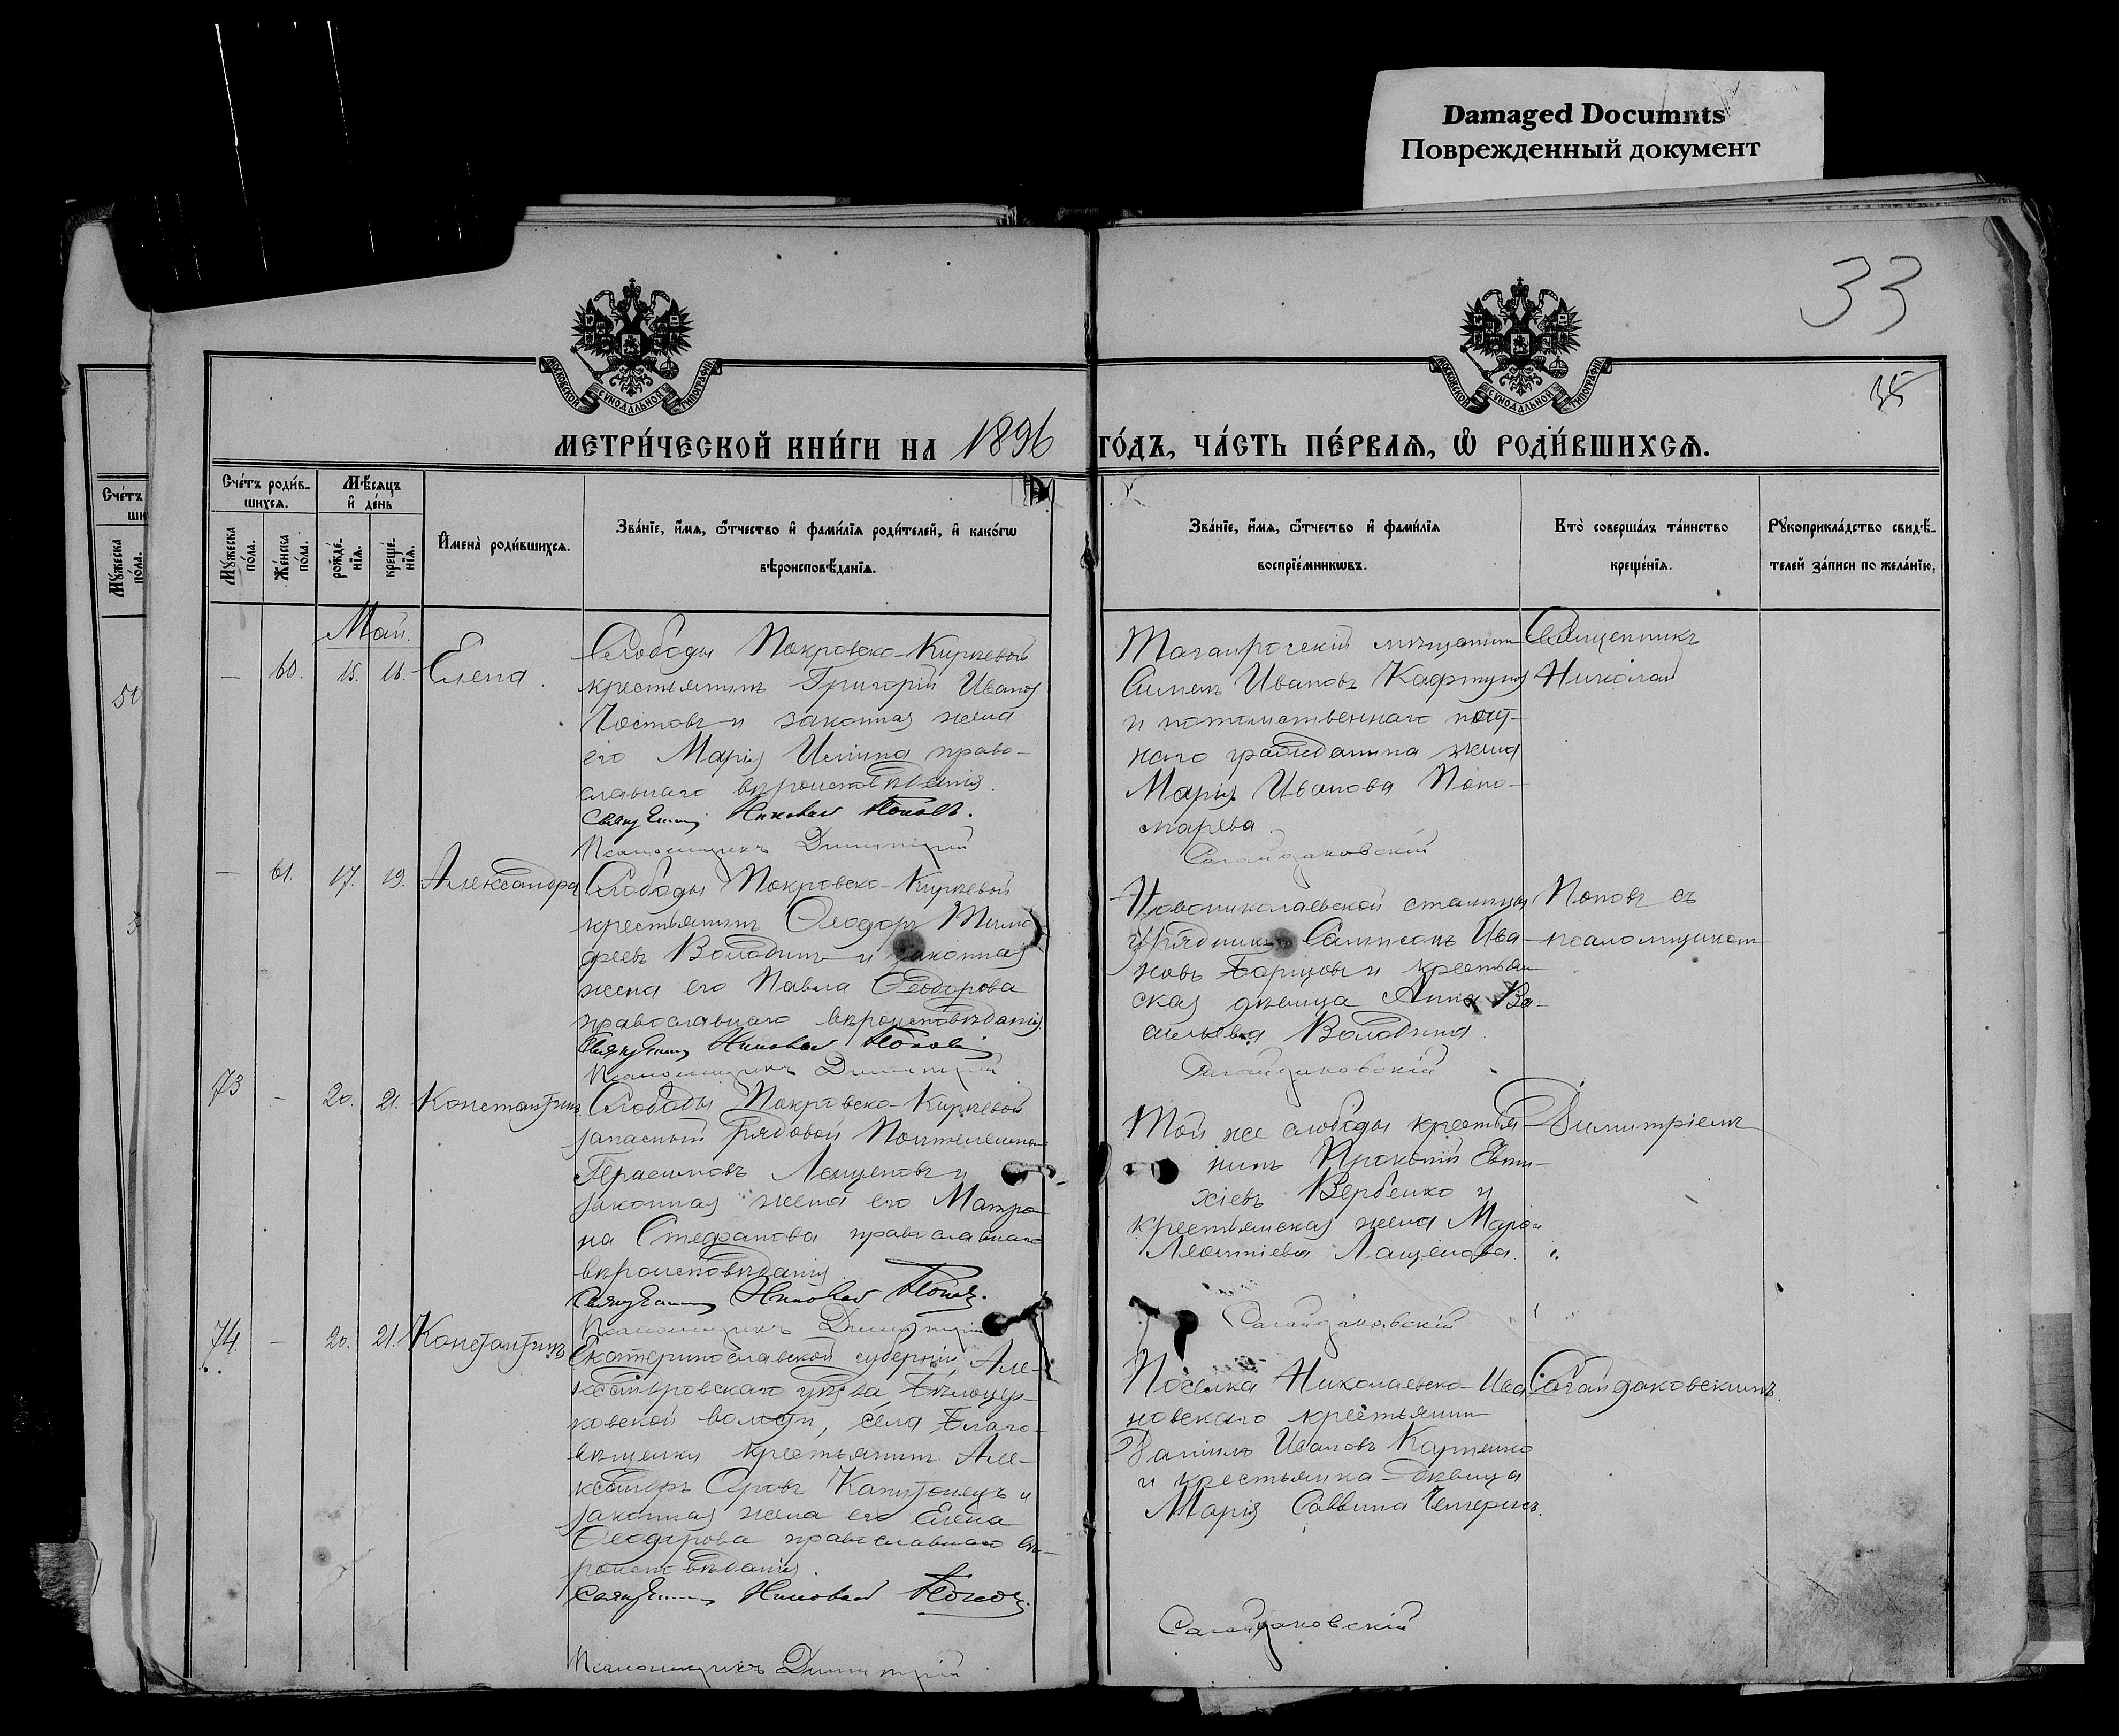 Damaged Documnts
Поврежденный документ
33
35
МОСКОВСКОЙ СУНОДАЛЬНОЙ ТИПОГРАФІИ
МОСКОВСКОЙ СУНОДАЛЬНОЙ ТИПОГРАФІИ
МЕТРИ́ЧЕСКОЙ КНИ́ГИ НА 1896
ГО́ДЪ, ЧА́СТЬ ПЕ́РВАѦ, Ѡ҆ РОДИ́ВШИХСѦ.
Счéтъ роди́в-
шихсѧ.
Мꙋ́жеска по́ла.
Же́нска по́ла.
Мѣ́сѧцъ
и҆ де́нь
рожде́нїѧ.
креще́нїѧ.
И҆мена̀ роди́вшихсѧ.
Зва́нїе, и҆́мѧ, ѻ҆́тчество и҆ фами́лїѧ роди́телей, и҆ како́гѡ
вѣроисповѣ́данїѧ.
Зва́нїе, и҆́мѧ, ѻ҆́тчество и҆ фами́лїѧ
воспрїе́мникѡвъ.
Кто̀ соверша́лъ та́инство
креще́нїѧ.
Рꙋкоприкла́дство свидѣ́-
телей за́писи по жела́нїю.
Май.
— 60. 15. 16. Елена.
Слободы Покровско-Киреевой
крестьянинъ Григорій Ивановъ
и законная жена
его Марія право-
славнаго вѣроисповѣданія.
Священникъ Николай Поповъ.
Псаломщикъ Димитрій
Таганрогскій мѣщанинъ
Ивановъ
и потомственнаго почет-
наго гражданина жена
Марія Иванова Поно-
марева.
Сагайдаковскій
Священникъ
Николай
— 61. 17. 19. Александра
Слободы Покровско-Киреевой
крестьянинъ Ѳеодоръ Тимо-
феевъ Володинъ и законная
жена его Павла Ѳеодорова
православнаго вѣроисповѣданія
Священникъ Николай Поповъ
Псаломщикъ Димитрій
Новониколаевской станицы
урядникъ Сампсонъ Ива-
новъ и крестьян-
ская дѣвица Анна Ва-
сильева Володина.
Сагайдаковскій
Поповъ съ
псаломщикомъ
73 — 20. 21. Константинъ
Слободы Покровско-Киреевой
запасный рядовой
Герасимовъ Лащеновъ и
законная жена его Матро-
на Стефанова православнаго
вѣроисповѣданія.
Священникъ Николай Поповъ.
Псаломщикъ Димитрій
Той же слободы крестья-
нинъ Прокопій Евти-
хіевъ Вербенко и
крестьянская жена
Леонтіева Лащенова.
Сагайдаковскій
Димитріемъ
74. — 20. 21. Константинъ
Екатеринославской губерніи, Але-
ксандровскаго уѣзда, Бѣлоцер-
ковской волости, села Благо-
вѣщенки крестьянинъ Але-
ксандръ и
законная жена его Елена
Ѳеодорова православнаго вѣ-
роисповѣданія.
Священникъ Николай Поповъ.
Псаломщикъ Димитрій
Поселка Николаевско-Ива-
новскаго крестьянинъ
Даніилъ Ивановъ
и крестьянка-дѣвица
Марія Саввина
Сагайдаковскій
Сагайдаковскимъ.